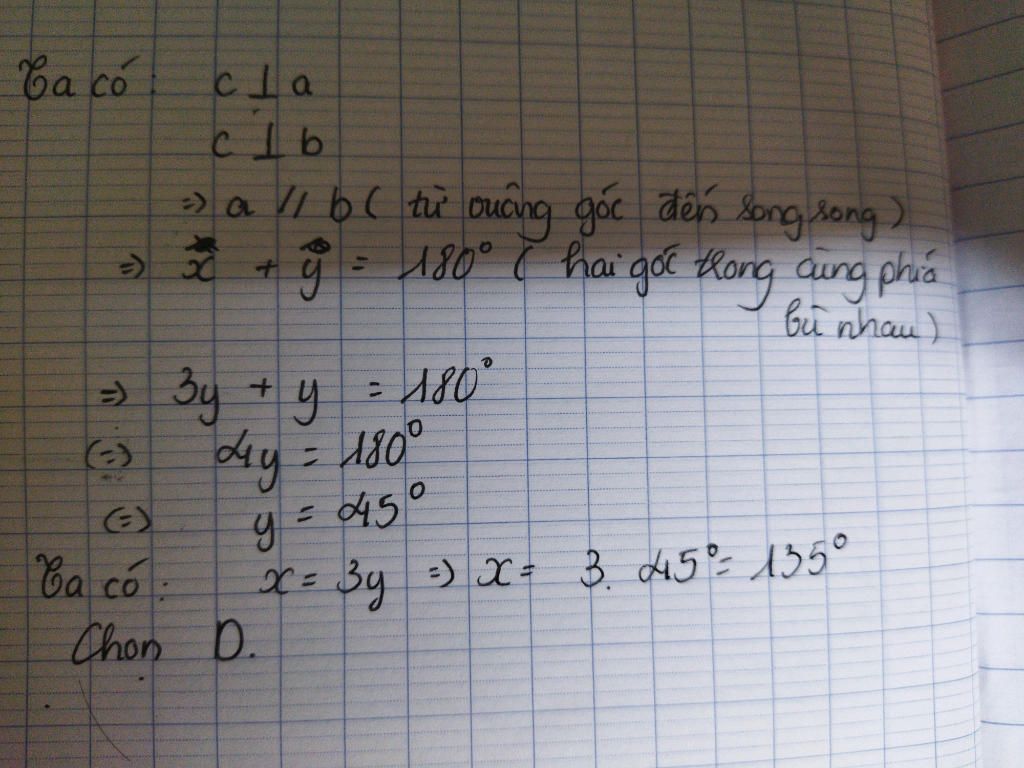 Ta có : c ⊥ a
c ⊥ b
=> a // b ( từ vuông góc đến song song )
=> x + y = 180° ( hai góc trong cùng phía
bù nhau )
=> 3y + y = 180°
(=) 4y = 180°
(=) y = 45°
Ta có : x = 3y => x = 3. 45° = 135°
Chọn D.